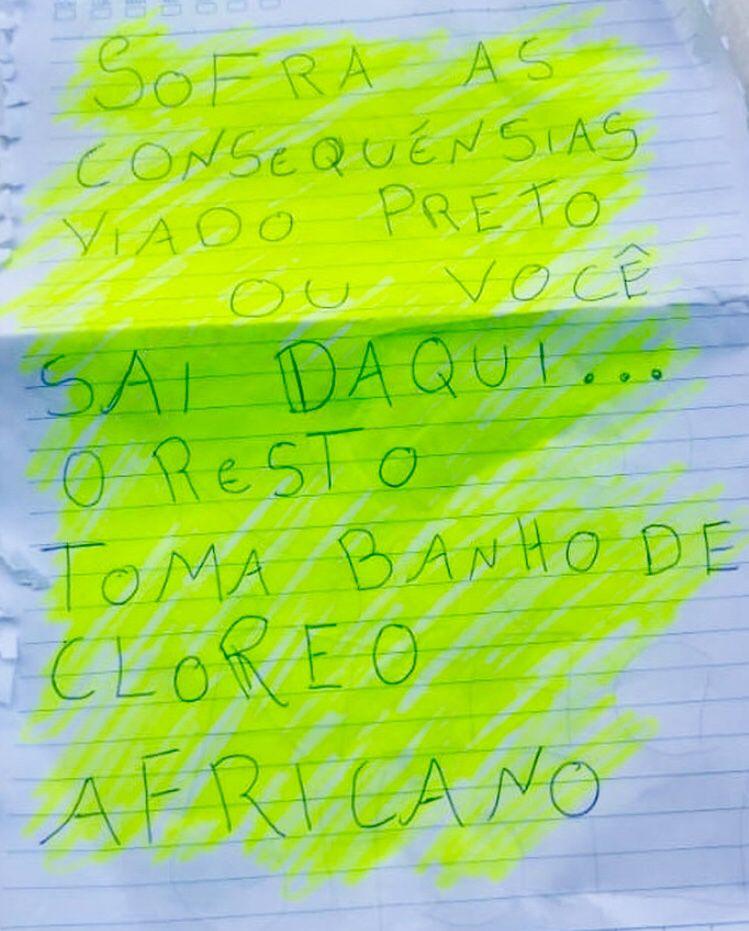 SOFRA AS
CONSEQUÊNSIAS
VIADO PRETO
OU VOCÊ
SAI DAQUI...
O RESTO
TOMA BANHO DE
CLOREO
AFRICANO